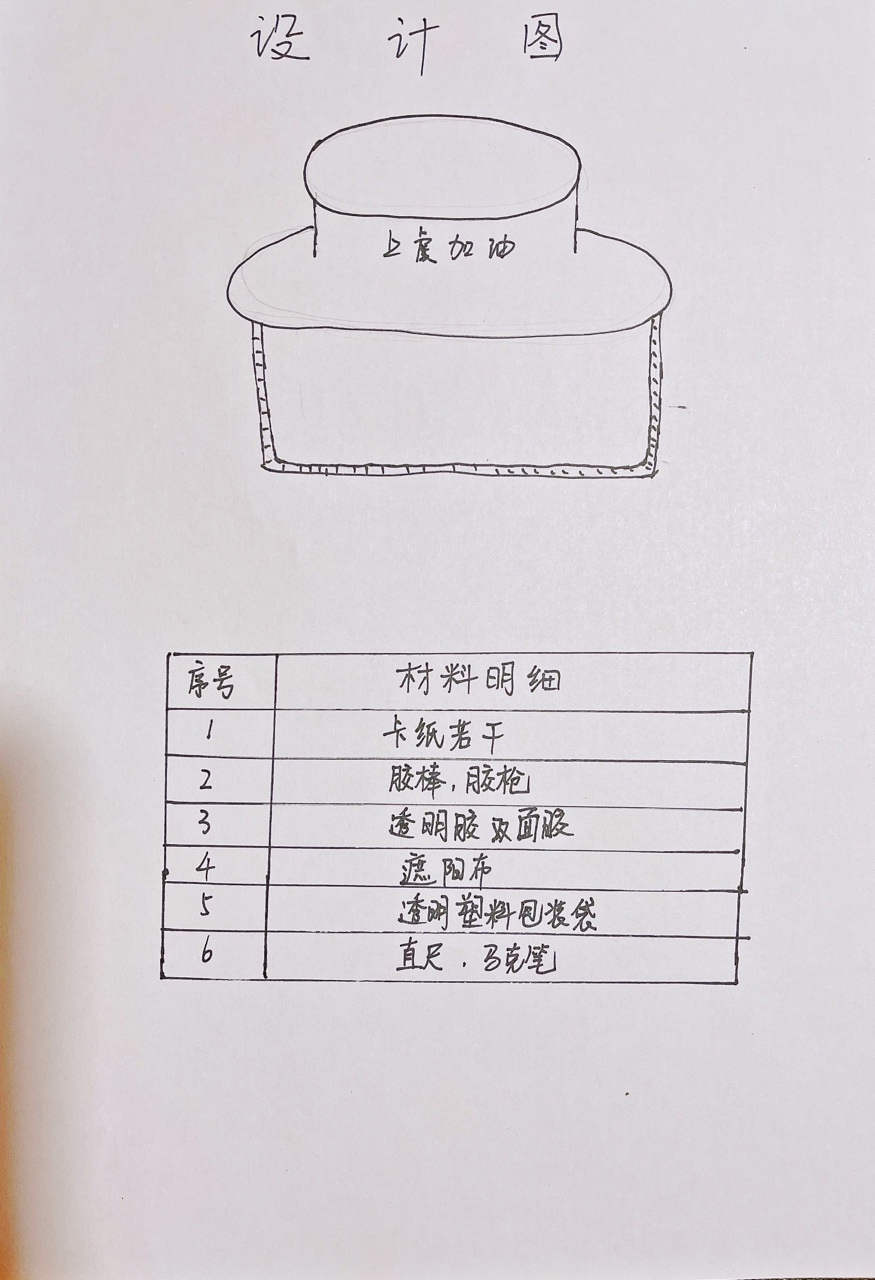 设计图
上虞加油
序号 材料明细
1 卡纸若干
2 胶棒,胶枪
3 透明胶 双面胶
4 遮阳布
5 透明塑料包装袋
6 直尺.马克笔